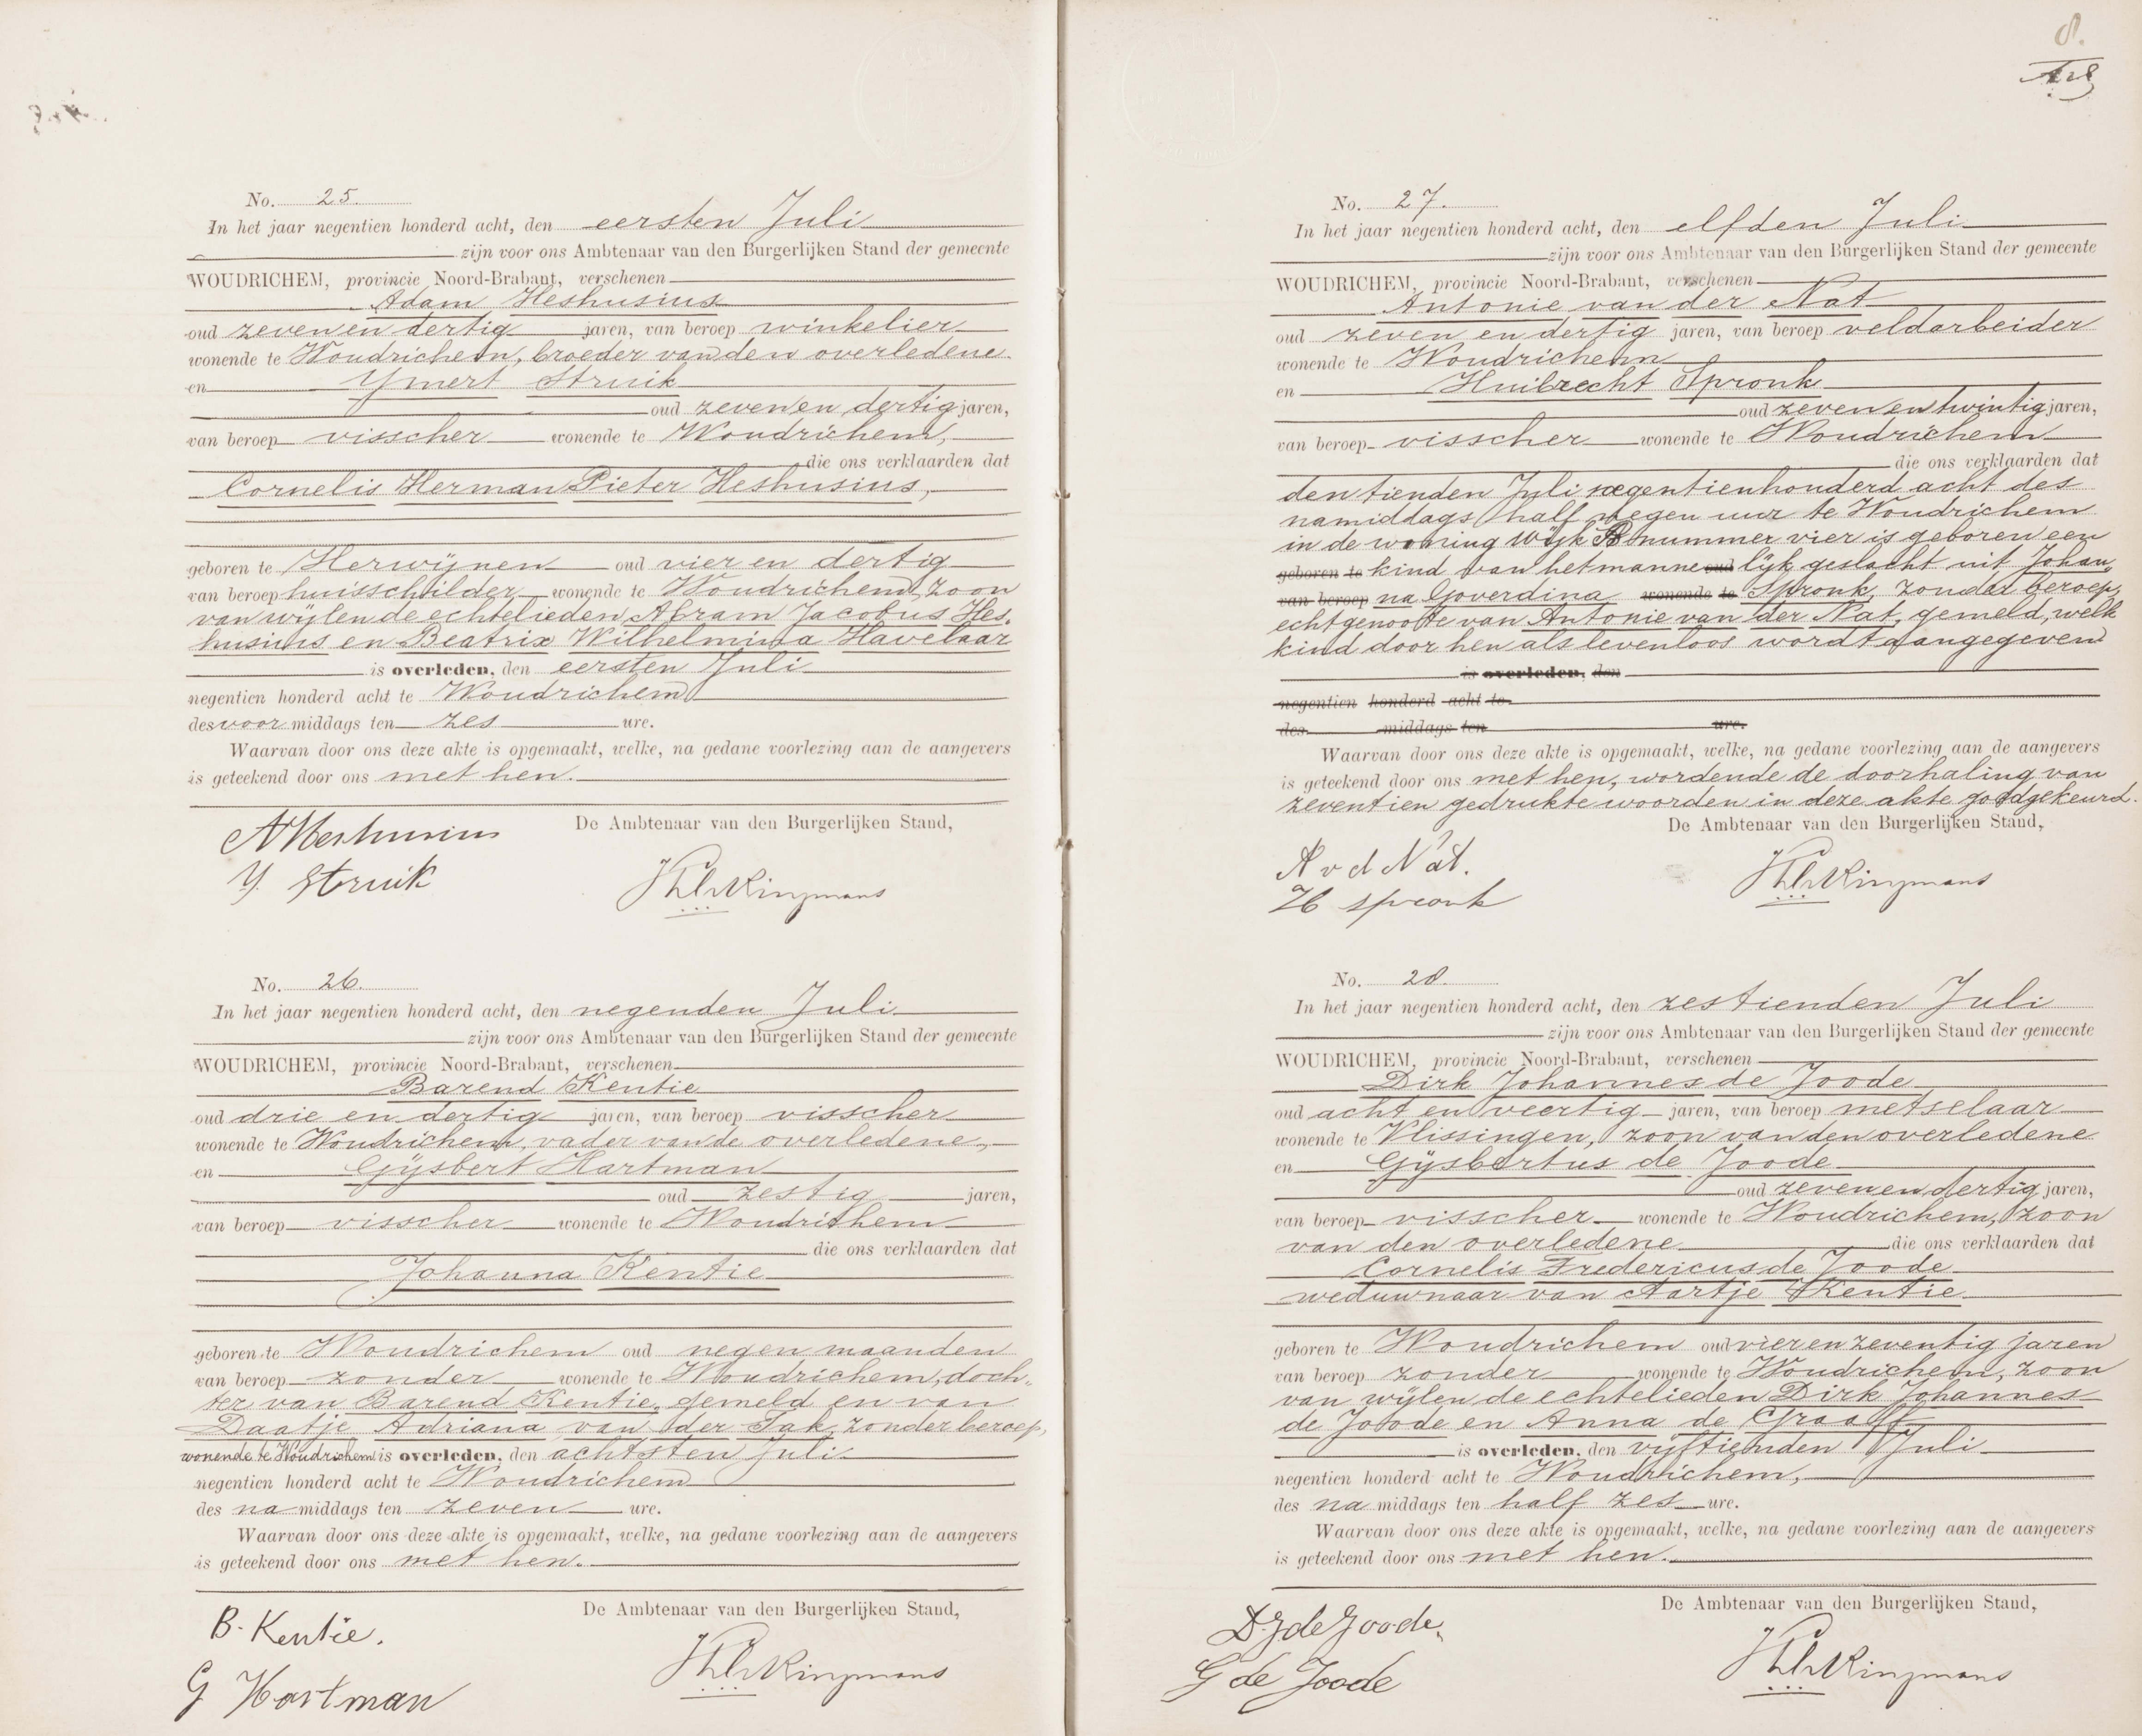 No. 25.
In het jaar negentien honderd acht, den eersten Juli
zijn voor ons Ambtenaar van den Burgerlijken Stand der gemeente
WOUDRICHEM, provincie Noord-Brabant, verschenen
Adam Heshusius
oud zeven en dertig jaren, van beroep winkelier
wonende te Woudrichem, broeder van den overledene
en Ymert Struik
oud zeven en dertig jaren,
van beroep visscher wonende te Woudrichem,
die ons verklaarden dat
Cornelis Herman Pieter Heshusius,
geboren te Herwijnen oud vier en dertig
van beroep huisschilder wonende te Woudrichem, zoon
van wijlen de echtelieden Abram Jacobus Hes-
husius en Beatrix Wilhelmina Havelaar
is overleden, den eersten Juli
negentien honderd acht te Woudrichem
des voormiddags ten zes ure.
Waarvan door ons deze akte is opgemaakt, welke, na gedane voorlezing aan de aangevers
is geteekend door ons met hen.
De Ambtenaar van den Burgerlijken Stand,
A Heshusius
Y. Struik
No. 26.
In het jaar negentien honderd acht, den negenden Juli
zijn voor ons Ambtenaar van den Burgerlijken Stand der gemeente
WOUDRICHEM, provincie Noord-Brabant, verschenen
Barend Kentie
oud drie en dertig jaren, van beroep visscher
wonende te Woudrichem, vader van de overledene,
en Gijsbert Hartman
oud zestig jaren,
van beroep visscher wonende te Woudrichem
die ons verklaarden dat
Johanna Kentie
geboren te Woudrichem oud negen maanden
van beroep zonder wonende te Woudrichem, doch-
ter van Barend Kentie, gemeld en van
Daatje Adriana van der Tak, zonder beroep,
wonende te Woudrichem is overleden, den achtsten Juli
negentien honderd acht te Woudrichem
des namiddags ten zeven ure.
Waarvan door ons deze akte is opgemaakt, welke, na gedane voorlezing aan de aangevers
is geteekend door ons met hen.
De Ambtenaar van den Burgerlijken Stand,
B. Kentie.
G Hartman
8.
No. 27.
In het jaar negentien honderd acht, den elfden Juli
zijn voor ons Ambtenaar van den Burgerlijken Stand der gemeente
WOUDRICHEM, provincie Noord-Brabant, verschenen
Antonie van der Nat
oud zeven en dertig jaren, van beroep veldarbeider
wonende te Woudrichem
en Huibrecht Spronk
oud zeven en twintig jaren,
van beroep visscher wonende te Woudrichem
die ons verklaarden dat
den tienden Juli negentienhonderd acht des
namiddags half negen uur te Woudrichem
in de woning Wijk B nummer vier is geboren een
geboren te kind van het manne oud lijk geslacht uit Johan-
van beroep na Goverdina wonende te Spronk, zonder beroep,
echtgenoote van Antonie van der Nat, gemeld, welk
kind door hen als levenloos wordt aangegeven
is overleden, den
negentien honderd acht te
des middags ten ure.
Waarvan door ons deze akte is opgemaakt, welke, na gedane voorlezing aan de aangevers
is geteekend door ons met hen, wordende de doorhaling van
zeventien gedrukte woorden in deze akte goedgekeurd.
De Ambtenaar van den Burgerlijken Stand,
A v d Nat.
H spronk
No. 28.
In het jaar negentien honderd acht, den zestienden Juli
zijn voor ons Ambtenaar van den Burgerlijken Stand der gemeente
WOUDRICHEM, provincie Noord-Brabant, verschenen
Dirk Johannes de Joode
oud acht en veertig jaren, van beroep metselaar
wonende te Vlissingen, zoon van den overledene
en Gijsbertus de Joode
oud zeven en dertig jaren,
van beroep visscher wonende te Woudrichem, zoon
van den overledene die ons verklaarden dat
Cornelis Fredericus de Joode
weduwnaar van Aartje Kentie
geboren te Woudrichem oud vier en zeventig jaren
van beroep zonder wonende te Woudrichem, zoon
van wijlen de echtelieden Dirk Johannes
de Joode en Anna de Graaff
is overleden, den vijftienden Juli
negentien honderd acht te Woudrichem,
des namiddags ten half zes ure.
Waarvan door ons deze akte is opgemaakt, welke, na gedane voorlezing aan de aangevers
is geteekend door ons met hen.
De Ambtenaar van den Burgerlijken Stand,
D. J de Joode.
G de Joode